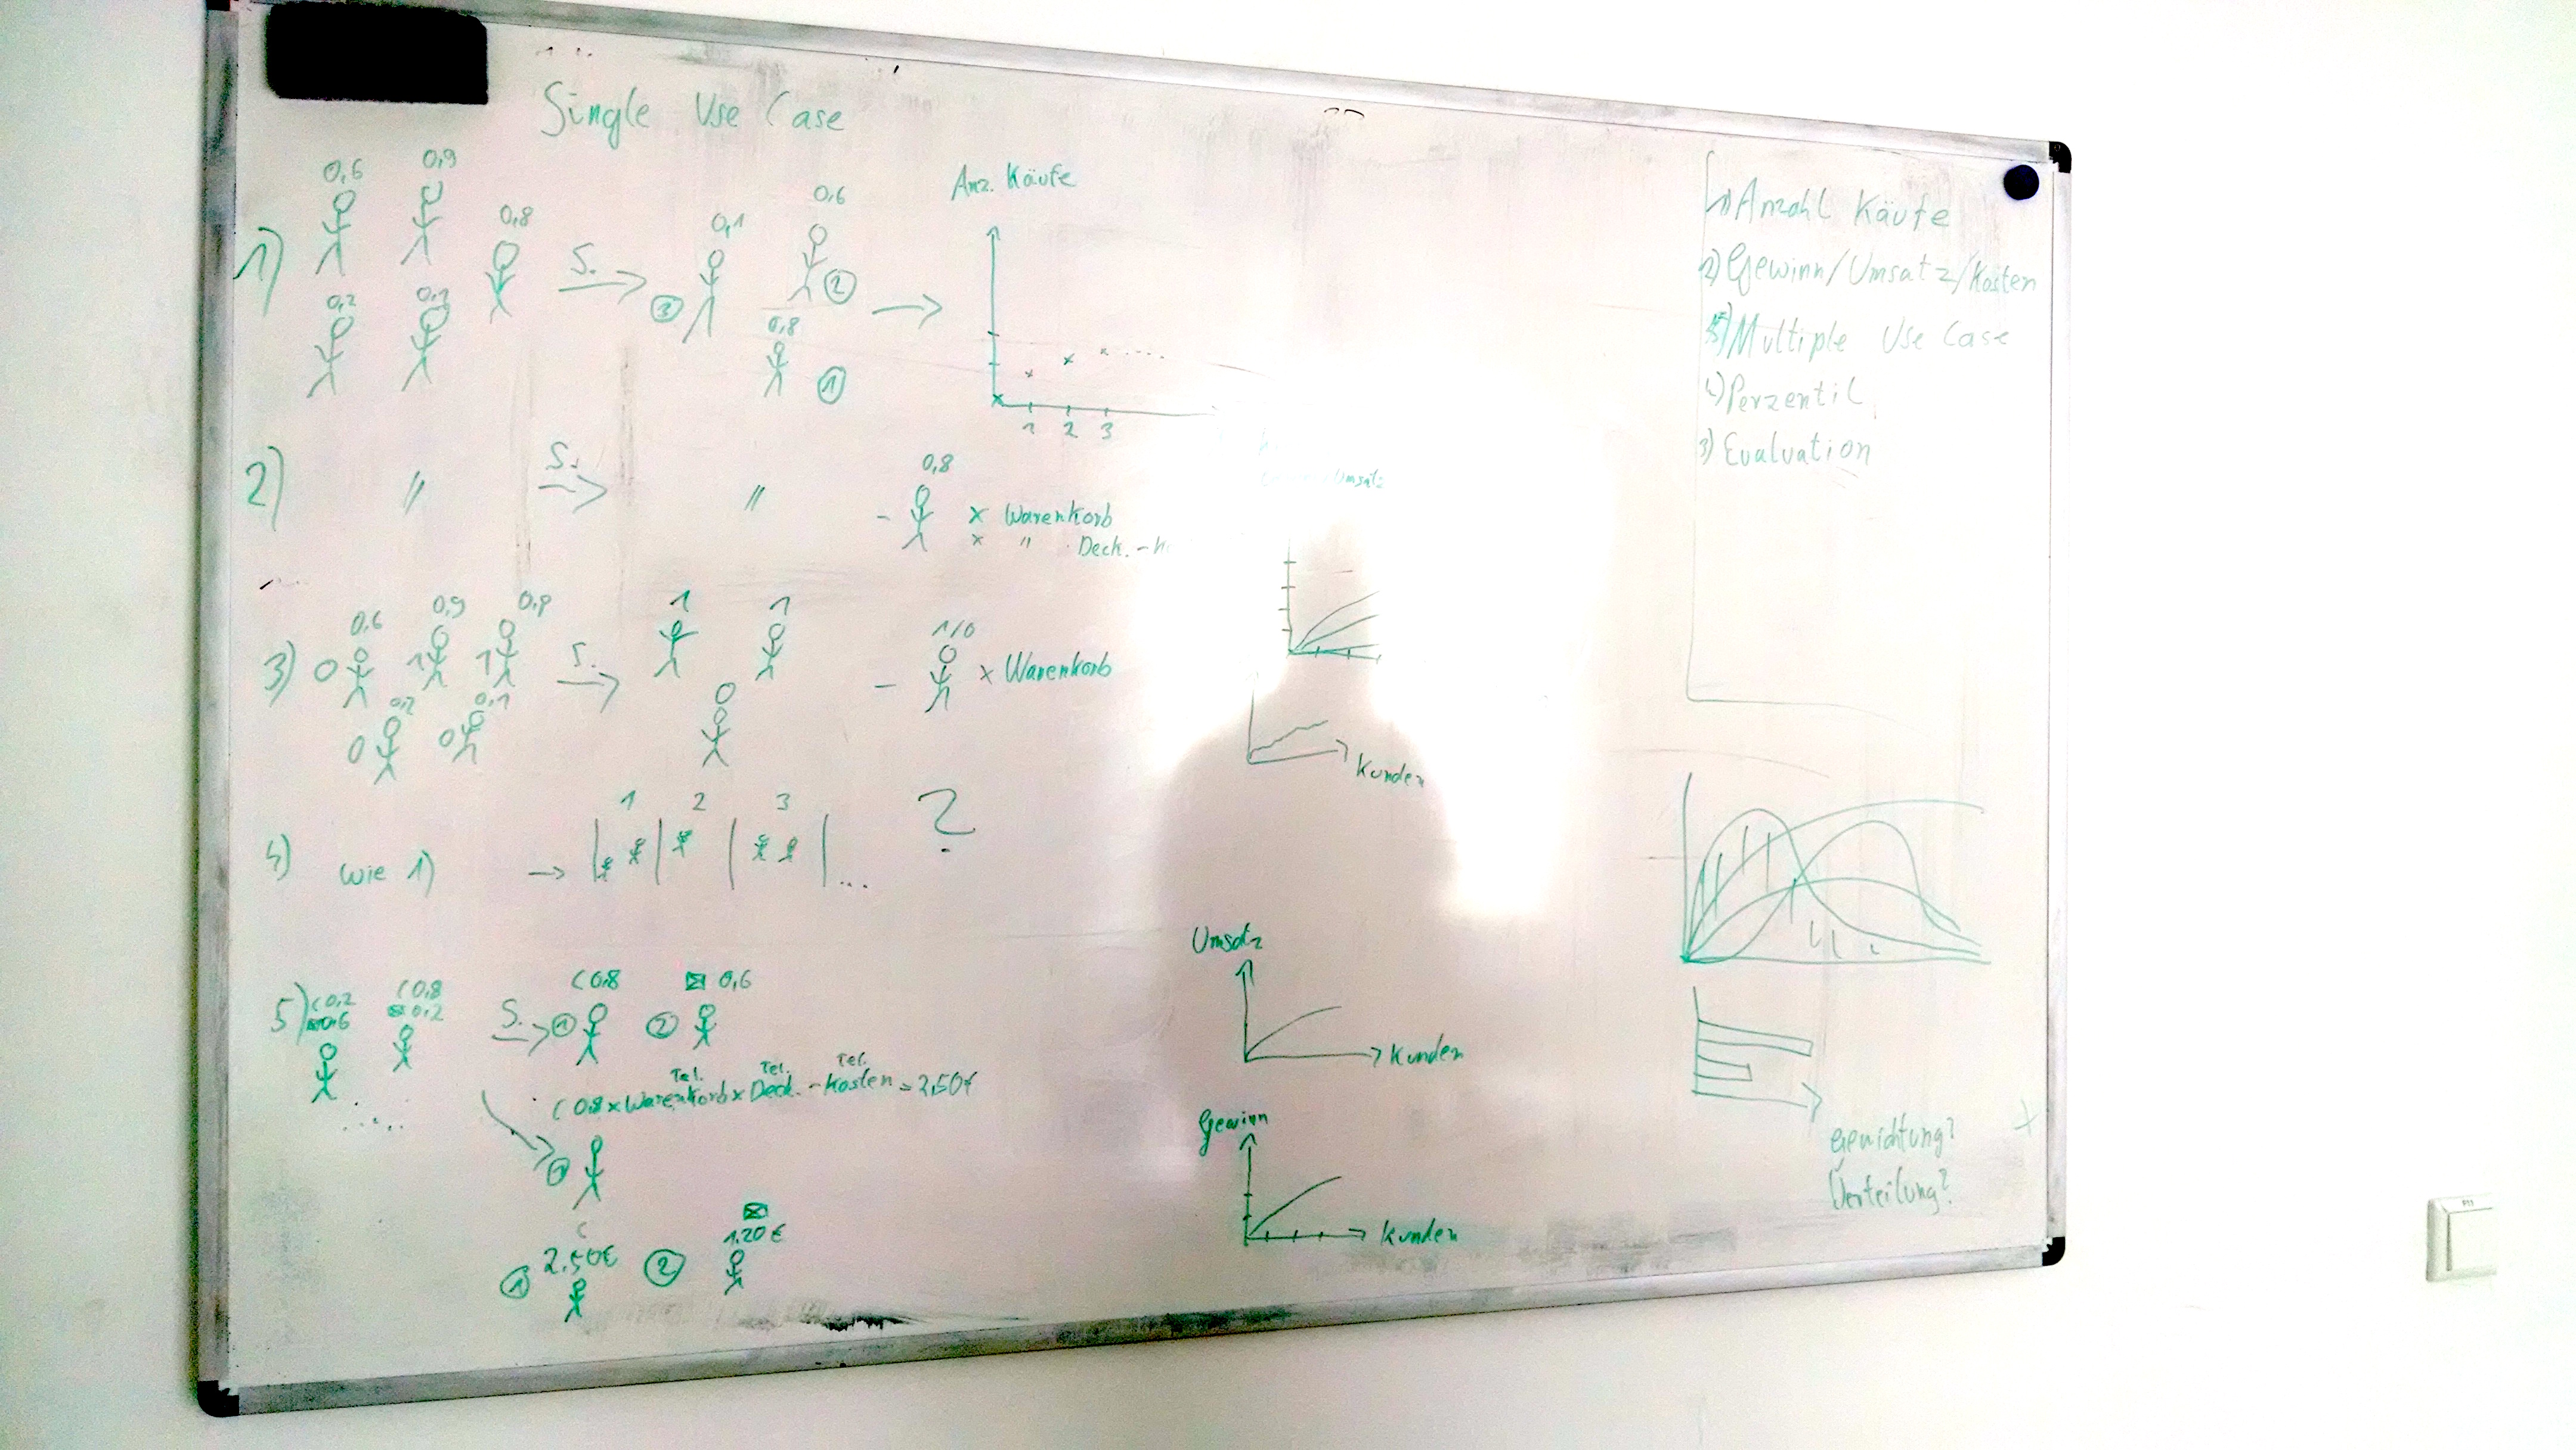 Single Use Case
1)
0,6
0,9
0,8
0,2
0,1
S.
0,1
0,6
3
2
0,8
1
Anz. Käufe
1 2 3
2)
〃
S.
〃
0,8
- x Warenkorb
x 〃 Deck. -
Umsatz
3)
0,6
0,9
0,8
0 1 1
0,2
0,1
0 0
S.
1
1
0
1/0
- x Warenkorb
Kunden
4) wie 1)
1 2 3
...
?
5)
( 0,2
✉ 0,6
( 0,8
✉ 0,2
.....
S.
1
( 0,8
2
✉ 0,6
Tel. Tel. Tel.
( 0,8 x Warenkorb x Deck. - Kosten = 2,50€
1
(
1 2,50€
2
✉
1,20 €
Umsatz
Kunden
Gewinn
Kunden
1) Anzahl Käufe
2) Gewinn/Umsatz/Kosten
5) Multiple Use Case
4) Perzentil
3) Evaluation
Gewichtung?
Verteilung?